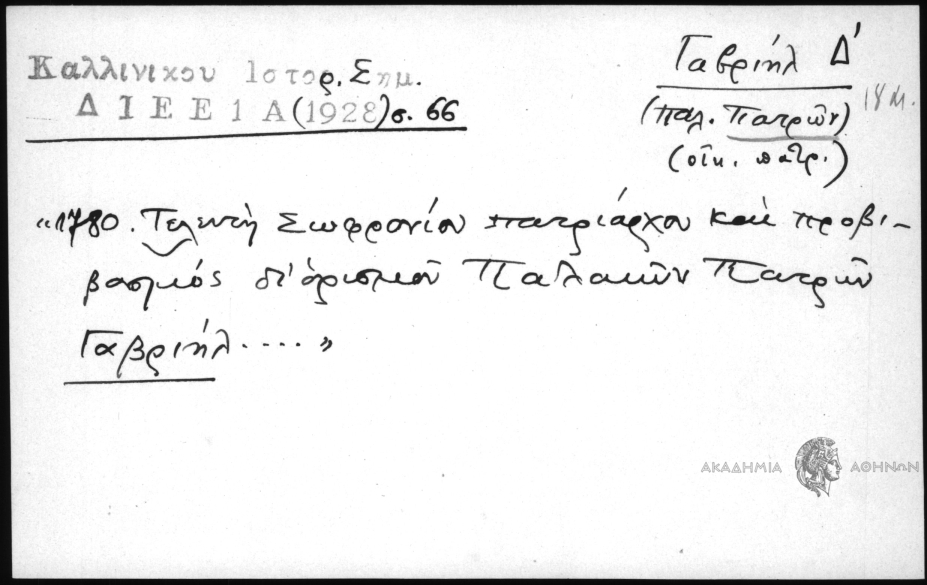 Καλλινικου Ιστορ. Σημ.
ΔΙΕΕ 1 Α (1928) σ. 66
Γαβριήλ Δ'
(παλ. Πατρῶν)
(οἰκ. πατρ.)
18 Μ.
«1780. Τελευτὴ Σωφρονίου πατριάρχου καὶ προβι-
βασμός δι' ὁρισμοῦ Παλαιῶν Πατρῶν
Γαβριήλ .... »
ΑΚΑΔΗΜΙΑ ΑΘΗΝΩΝ